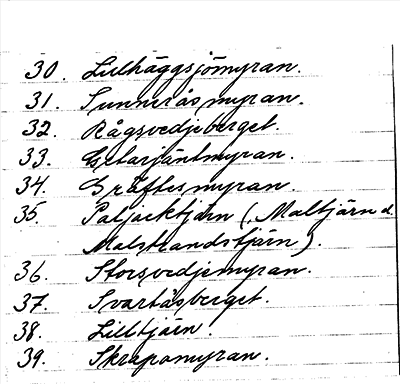 30. Lulhäggsjömyran.
31. Sunneråsmyran.
32. Rågsvedjeberget.
33. Getarjäntmyran.
34. Gräftesmyran.
35. Paljacktjärn (, Maltjärn el.
Malstrandstjärn).
36. Storsvedjemyran.
37. Svartåsberget.
38. Lilltjärn
39. Skrapamyran.